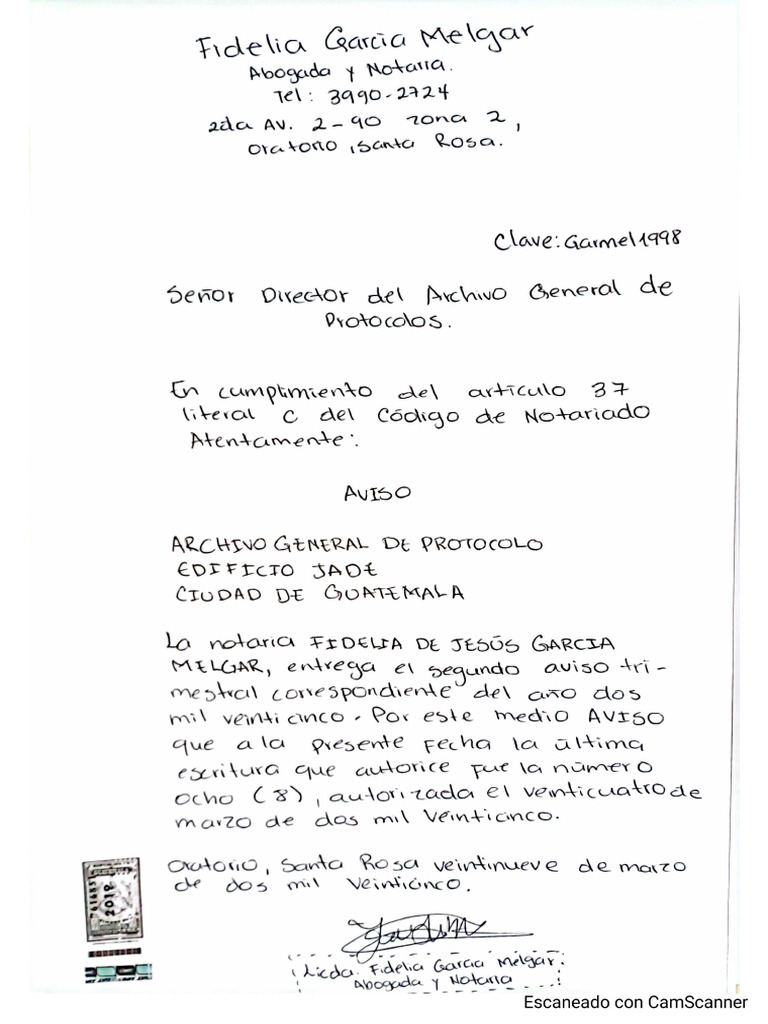 Fidelia Garcia Melgar
Abogada y Notaria.
Tel: 3990-2724
2da Av. 2-90 zona 2,
Oratorio, Santa Rosa.
Clave: Garmel1998
Señor Director del Archivo General de
Protocolos.
En cumplimiento del artículo 37
literal C del Código de Notariado
Atentamente:
AVISO
ARCHIVO GENERAL DE PROTOCOLO
EDIFICIO JADE
CIUDAD DE GUATEMALA
La notaria FIDELIA DE JESÚS GARCIA
MELGAR, entrega el segundo aviso tri-
mestral correspondiente del año dos
mil veinticinco. Por este medio AVISO
que a la presente fecha la última
escritura que autorice fue la número
ocho (8), autorizada el veinticuatro de
marzo de dos mil veinticinco.
Oratorio, Santa Rosa veintinueve de marzo
de dos mil veinticinco.
761685
2019
Licda. Fidelia Garcia Melgar.
Abogada y Notaria
Escaneado con CamScanner